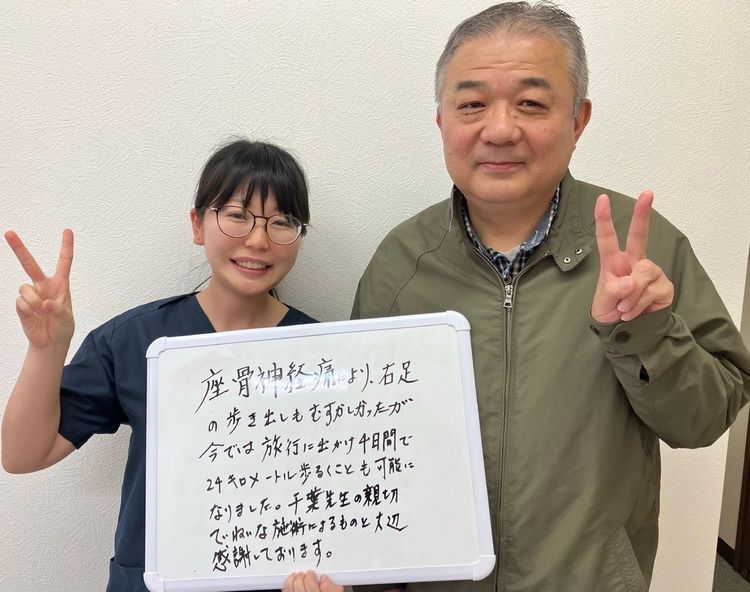 座骨神経痛により、右足
の歩き出しもむずかしかったが
今では旅行に出かけ4日間で
24キロメートル歩るくことも可能に
なりました。千葉先生の親切
でいねいな施術によるものと大辺
感謝しております。